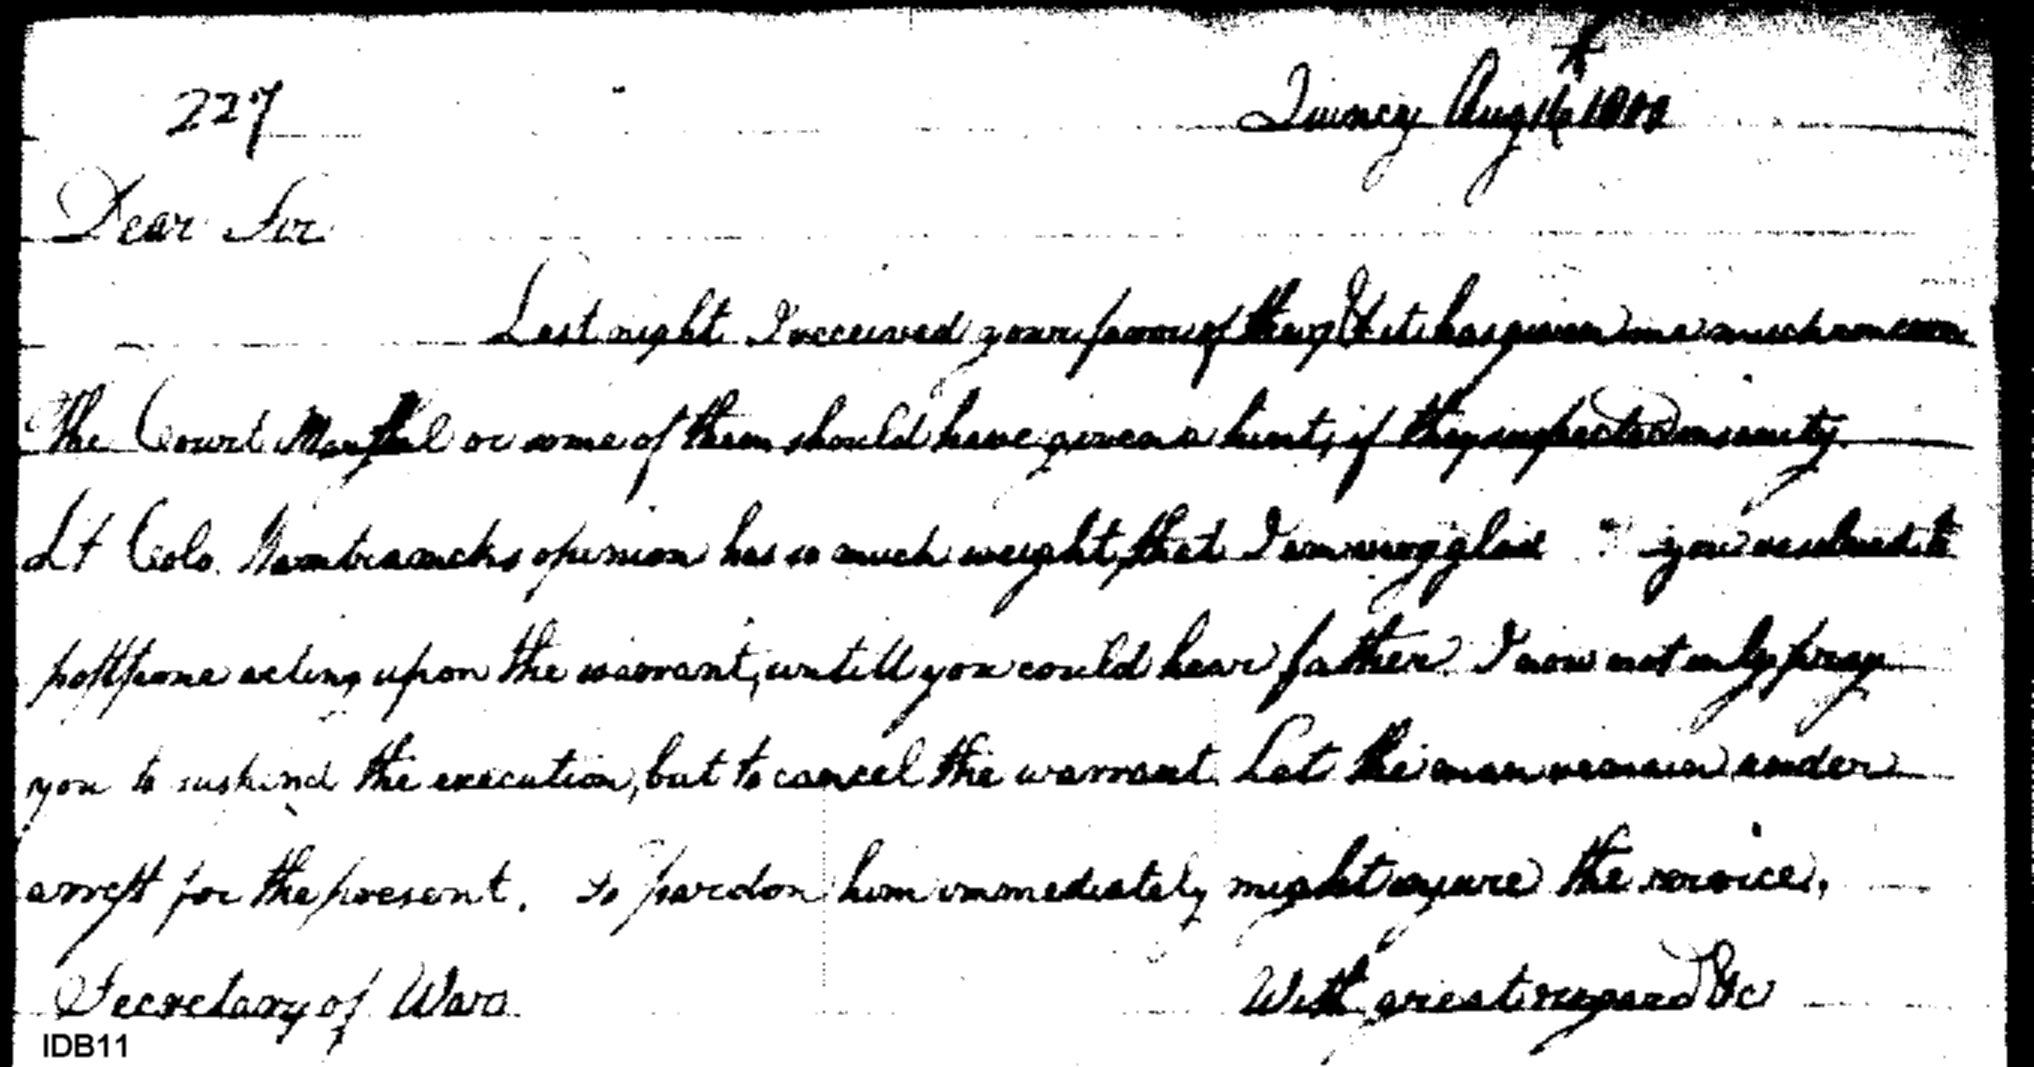 227
Quincy Aug 16th 1800
Dear Sir
Last night I received your favor of the 7 & it has given me much concern
The Court Marshal or some of them should have given a hint, if they suspected insanity.
Lt Colo. opinion has so much weight, that I am very glad you resolved to
postpone acting upon the warrant, untill you could hear father. I now not only pray
you to suspend the execution, but to cancel the warrant. Let the man remain under
arrest for the present. To pardon him immediately might injure the service.
Secretary of War With great regard &c
IDB11